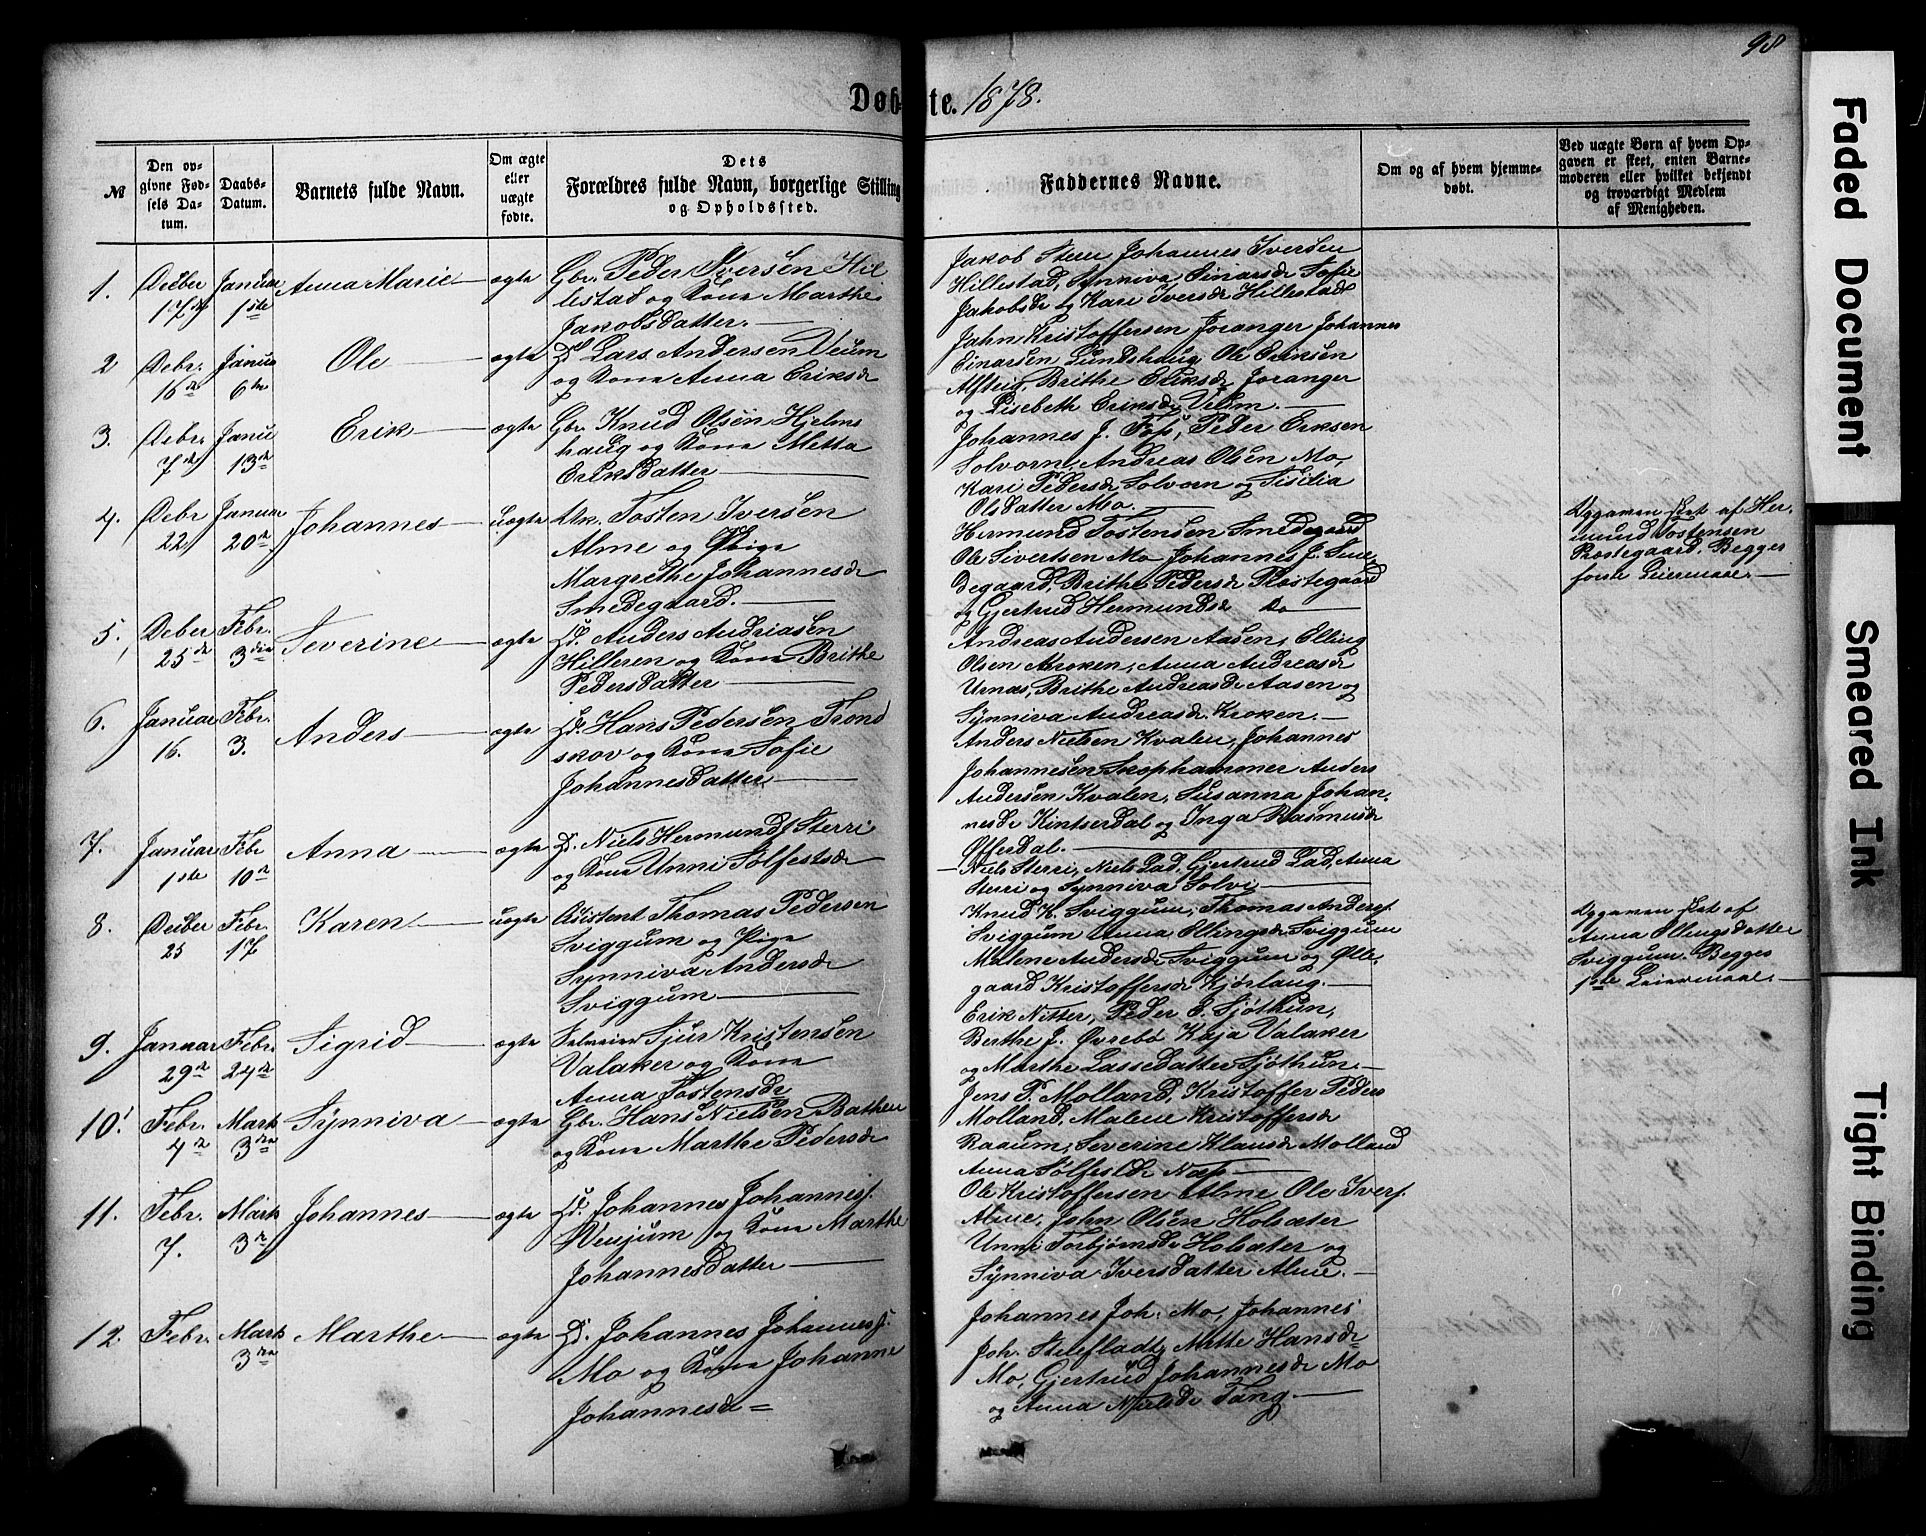 98
Døbte. 1878.
№
Den opgivne Fødsels Datum.
Daabs-Datum.
Barnets fulde Navn.
Om ægte eller uægte fødte.
Dets Forældres fulde Navn, borgerlige Stilling og Opholdssted.
Faddernes Navne.
Om og af hvem hjemmedøbt.
Ved uægte Børn af hvem Opgaven er skeet, enten Barnemoderen eller hvilket bekjendt og troværdigt Medlem af Menigheden.
1. Decber 17de Januar 1ste Anna Marie ægte
Gbr. Peder Iversen Hil
lestad og Kone Marthe
Jakobsdatter.
Jakob Steen Johannes Iversen
Hillestad, Synniva Einarsdr Sofie
Jakobsdr og Kari Iversdr Hillestad
2 Debr. 16de Januar 6te Ole ægte
Lars Andersen Veum
og Kone Anna Eriksdr
Jahn Kristoffersen Joranger Johannes
Einarsen Lundshaug Ole Eriksen
Alsteig, Brithe Eriksdr Joranger
og Lisebeth Eriksdr Veum.
3. Debr. 7de Janu 13de Erik ægte
Gbr. Knud Olsen Hjelms
haug og Kone Metta
Eriksdatter
Johannes J. Foss, Peder Eriksen
Solvorn, Andreas Olsen Mo,
Kari Pedersdr Solvorn og Sisilia
Olsdatter Mo.
4. Debr 22 Januar 20de Johannes uægte
Ungk. Tosten Iversen
Alme og Pige
Margrethe Johannesdr
Smedegaard.
Hermund Tostensen Smedegaard
Ole Sivertsen Mo Johannes J. Sme
degaard, Brithe Pedersdr Prestegaard
og Gjertrud Hermundsdr Do
Opgaven skeet af Her
mund Tostensen
Prestegaard. Begges
første Leiermaal.
5. Decber 25de Febr. 3die Severine ægte
Hd. Anders Andriasen
Hilleren og Kone Brithe
Pedersdatter
Andreas Andersen Aasen, Elling
Olsen Kroken, Anna Andreasdr
Urnæs, Brithe Andreasdr Aasen og
Synniva Andreasdr Kroken.
6. Januar 16. Febr. 3. Anders ægte
Hd. Hans Pedersen Trond
skov og Kone Sofie
Johannesdatter
Anders Nielsen Kvalen, Johannes
Johannesen Skophammer Anders
Andersen Kvalen, Susanna Johan,
nesdr Kintserdal og Inga Rasmusdr
Offerdal.
7. Januar 1ste Febr 10de Anna ægte
Hd. Niels Hermunds. Sterri
og Kone Unni Solfestsdr
Niels Sterri, Niels Lad, Gjertrud Lad, Anna
Sterri og Synniva Solvi
8. Decber 25 Febr. 17 Karen uægte
Assistent Thomas Pedersen
Sviggum og Pige
Synniva Andersdr
Sviggum
Knud K. Sviggum, Thomas Anders.
Sviggum Anna Ellingsdr Sviggum
Malene Andersdr Sviggum og Olle,
gaard Kristoffersdr Kjørlaug.
Opgaven skeet af
Anna Ellingsdatter
Sviggum. Begges
1ste Leiermaal.
9. Januar 29de Febr. 24de Sigrid ægte
Sjur Kristensen
Valaker og Kone
Anna Tostensdr
Erik Nitter, Peder E. Sjøthun,
Berthe J. Øvrebø Kaja Valaker
og Marthe Lassedatter Sjøthun.
10. Febr. 4de Marts 3die Synniva ægte
Gbr. Hans Nielsen Bathen
og Kone Marthe Pedersdr
Jens P. Molland, Kristoffer Peders
Molland, Malene Kristoffersdr
Raaum, Severine Klausdr Molland
Anna Solfestdr Næs
11. Febr. 7. Marts 3die Johannes ægte
Hd. Johannes Johannes.
Venjum og Kone Marthe
Johannesdatter
Ole Kristoffersen Alme Ole Ivers.
Alme, John Olsen Holsæter
Unni Torbjørnsdr Holsæter og
Synniva Iversdatter Alme.
12. Febr. Marts 3die Marthe ægte
Hd. Johannes Johannes.
Mo og Kone Johanne
Johannesd=
Johannes Joh. Mo, Johannes
Joh. Mette Hansdr
Mo, Gjertrud Johannesdr Mo
og Anna Nielsdr Tang.
Faded Document
Smeared Ink
Tight Binding